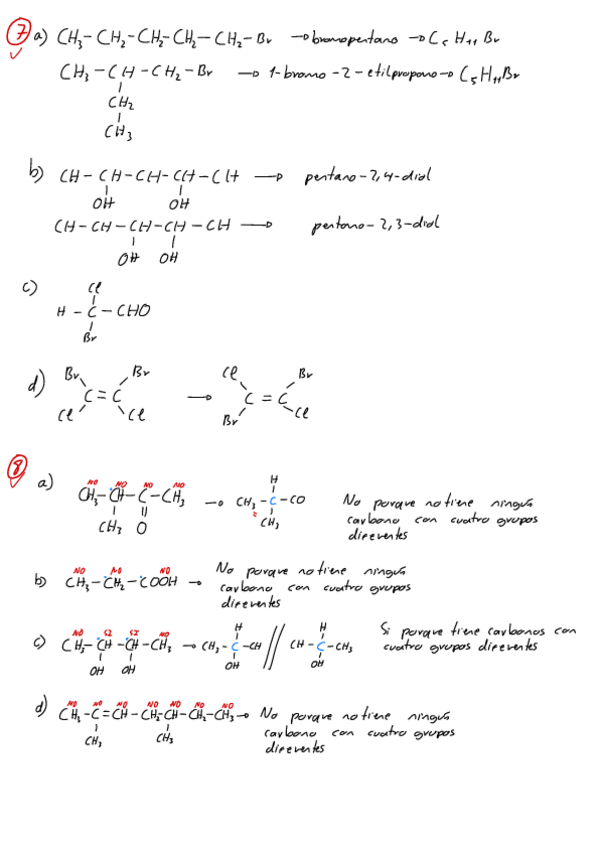 7 a) CH₃-CH₂-CH₂-CH₂-CH₂-Br → bromopentano → C₅H₁₁Br
CH₃-CH-CH₂-Br → 1-bromo-2-etilpropano → C₅H₁₁Br
CH₂
CH₃
b) CH-CH-CH-CH-CH → pentano-2,4-diol
OH OH
CH-CH-CH-CH-CH → pentano-2,3-diol
OH OH
c) Cl
H-C-CHO
Br
d) Br Br Cl Br
C=C → C=C
Cl Cl Br Cl
8
a) NO NO NO NO
H
CH₃-CH-C-CH₃ → CH₃-C-CO No porque no tiene ningún
CH₃ O 2 CH₃ carbono con cuatro grupos
diferentes
b) NO NO NO
CH₃-CH₂-COOH → No porque no tiene ningún
carbono con cuatro grupos
diferentes
c) NO SI SI NO H H Si porque tiene carbonos con
CH₃-CH-CH-CH₃ → CH₃-C-CH // CH-C-CH₃ cuatro grupos diferentes
OH OH OH OH
d) NO NO NO NO NO NO NO
CH₃-C=CH-CH₂-CH-CH₂-CH₃ → No porque no tiene ningún
CH₃ CH₃ carbono con cuatro grupos
diferentes